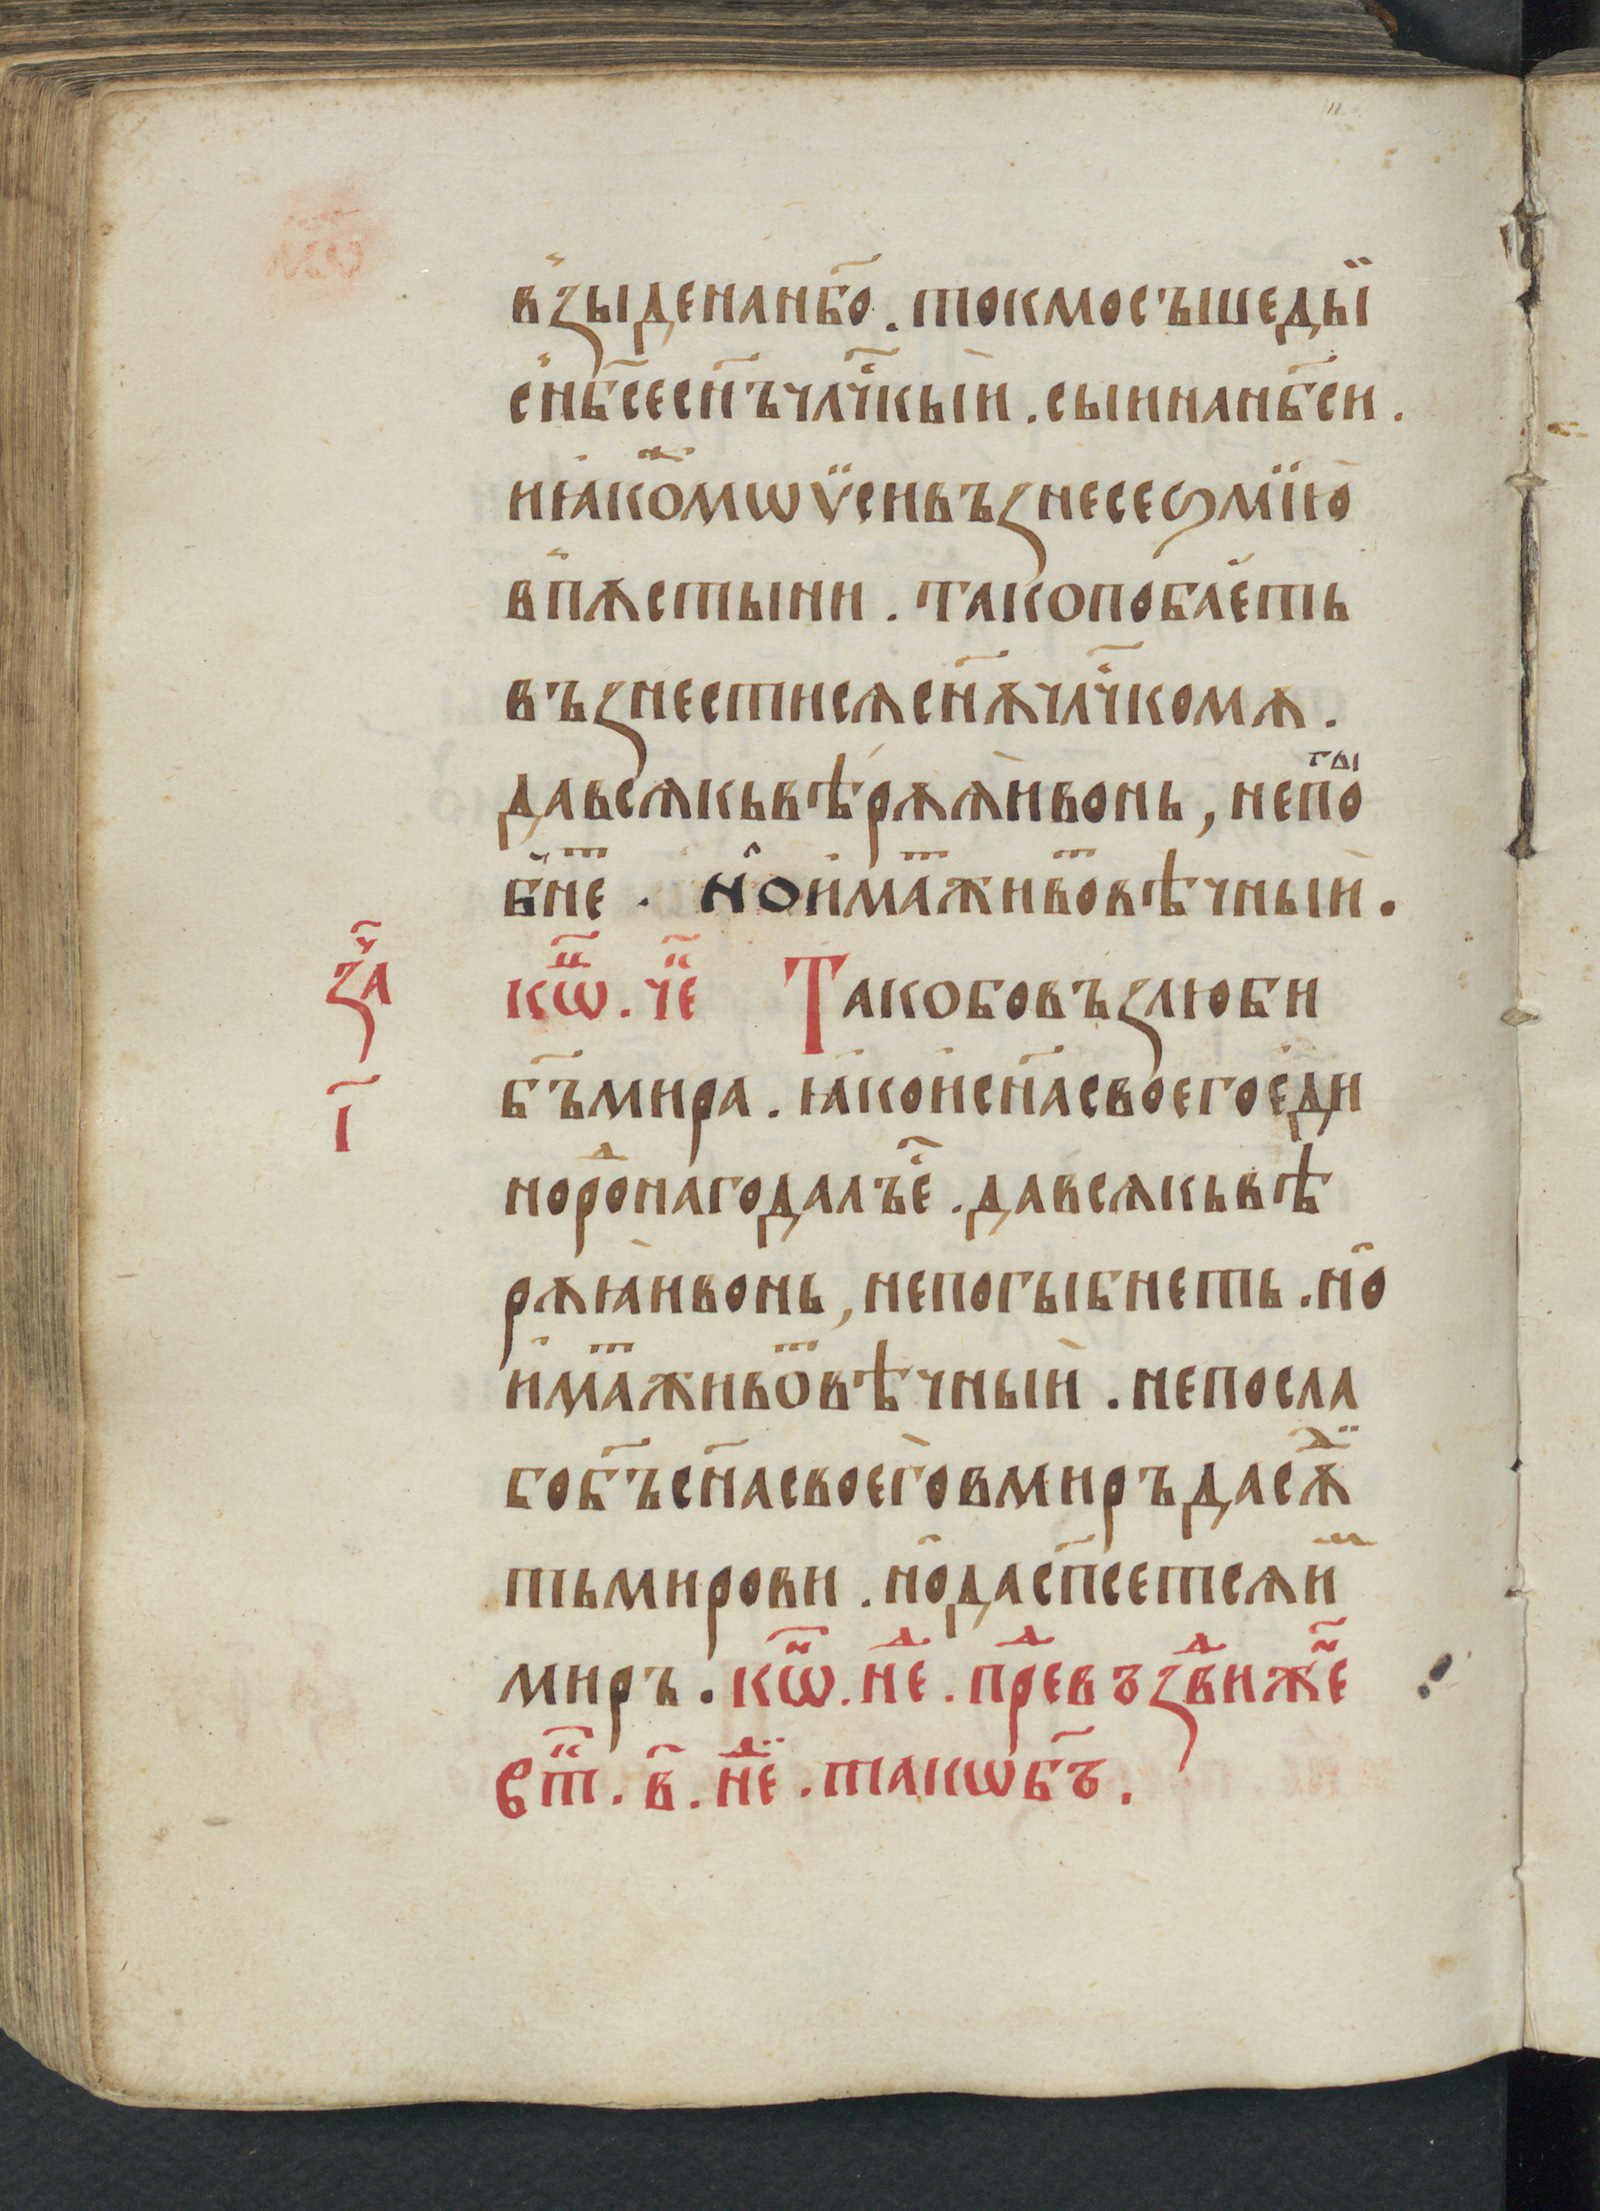 в҆зыденанб҃о . токмосъшедыи
с҆нб҃сесн҃ъчл҃чкыи . сыинанб҃си .
ниꙗкомѡѵ̈сивъзнесеѕмїю
в҆пꙋстыни . такопобае́ть
възнестисѧсн҃ꙋчл҃чкомꙋ .
давсѧкъвѣрꙋѧивонь , непогы
бнеⷮ . но҆имаⷮживоⷮвѣчныи .
кѡⷩ҇ . чеⷮ Такобовъзлюби
б҃ъмира . ꙗкоисн҃асвоегоѐди
нороⷣнагодалъе҆ⷭ . давсѧкъвѣ
рꙋꙗивонь , непогыбнеть . но
имаⷮживоⷮвѣчныи . непосла
боб҃ъсн҃асвоегòвмиръдасꙋⷣ
тьмирови . нодасп҃сетсѧиⷨ
миръ . кѡⷩ҇ . неⷣ . преⷣвъзⷣвижеⷩ҇
еѵⷢ҇ . в҃ . неⷣ . такѡб҃ъ .
заⷱ҇
і҃